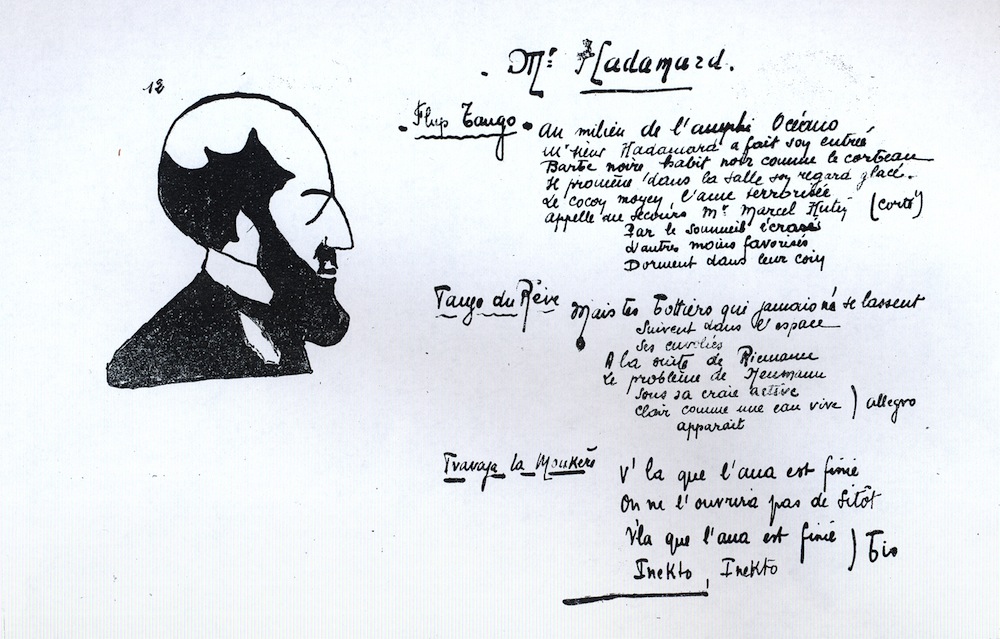 12
Mr. Hadamard.
Flup Tango
au milieu de l'amphi Océano
M'sieur Hadamard a fait son entrée
Barbe noire habit noir comme le corbeau
Il promène dans la salle son regard glacé.
Le cocon moyen, l'ame terrorisée
appelle au secours Mr Marcel
Par le sommeil écrasés
d'autres moins favorisés
Dorment dans leur coin
Tango du Rêve
Mais les bottiers qui jamais ne se lassent
Suivent dans l'espace
Ses envolées
A la suite de Riemann
Le problème de Neumann
sous sa craie active
Clair comme une eau vive ) allegro
apparait
Travaja la Moukère
V'la que l'ana est finie
On ne l'ouvrira pas de sitôt
V'la que l'ana est finie
Inekto, Inekto ) bis